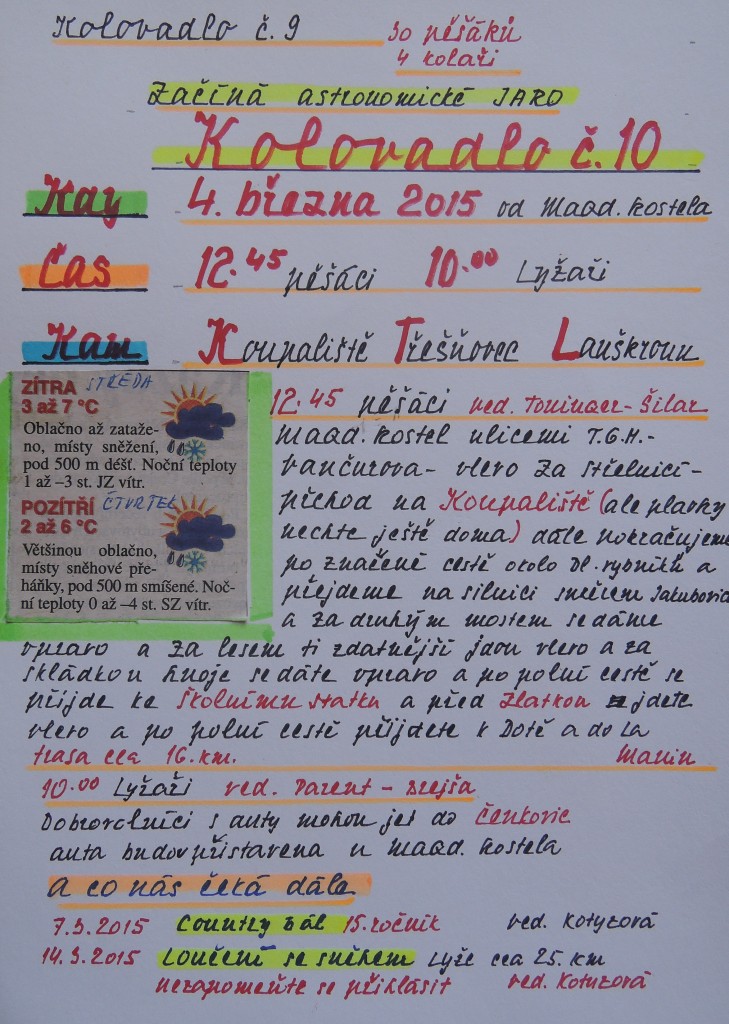 Kolovadlo č. 9 30 pěšáků
4 kolaři
Začíná astronomické JARO
Kolovadlo č. 10
Kdy 4. března 2015 od Magd. kostela
Čas 12.45 pěšáci 10.00 Lyžaři
Kam Koupaliště Třešňovec Lanškroun
ZÍTRA STŘEDA
3 až 7 °C
Oblačno až zataže-
no, místy sněžení,
pod 500 m déšť. Noční teploty
1 až –3 st. JZ vítr.
POZÍTŘÍ ČTVRTEK
2 až 6 °C
Většinou oblačno,
místy sněhové pře-
háňky, pod 500 m smíšené. Noč-
ní teploty 0 až –4 st. SZ vítr.
12.45 pěšáci ved. Toninger - Šilar
Magd. kostel ulicemi T.G.M.-
Vančurova - vlevo za střelnicí -
příchod na Koupaliště (ale plavky
nechte ještě doma) dále pokračujeme
po značené cestě okolo Dl. rybníků a
přejdeme na silnici směrem Jakubovic
a za druhým mostem se dáme
vpravo a za lesem ti zdatnější jdou vlevo a za
skládkou hnoje se dáte vpravo a po polní cestě se
přijde ke školnímu statku a před Zlatkou jdete
vlevo a po polní cestě přijdete k Dotě a do La
trasa cca 16. km. Manin
10.00 Lyžaři ved. Parent - Brejša
Dobrovolníci s auty mohou jet do Čenkovic
auta budou přistavena u Magd. kostela
A co nás čeká dále
7.3.2015 Country bál 15. ročník ved. Kotyzová
14.3.2015 Loučení se sněhem Lyže cca 25. km
nezapomeňte se přihlásit ved. Kotyzová